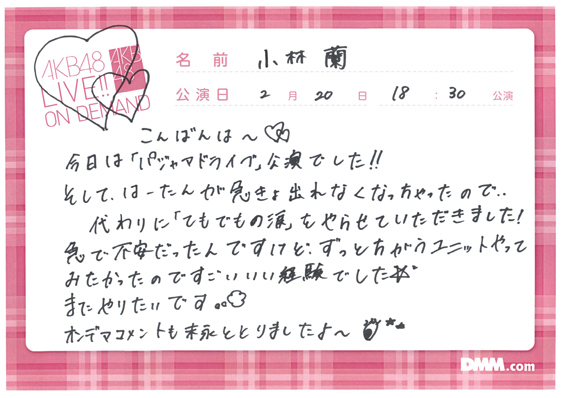 AKB48
LIVE!!
ON DEMAND
AKB
48
名前 小林 蘭
公演日 2月20日 18:30 公演
こんばんは〜
今日は「パジャマドライブ」公演でした!!
そして、はーたんが急きょ出れなくなっちゃったので..
代わりに「てもでもの涙」をやらせていただきました!
急で不安だったんですけど、ずっとちがうユニットやって
みたかったのですごいいい経験でした
またやりたいです。。
オンデマコメントも末永ととりましたよ〜
DMM.com